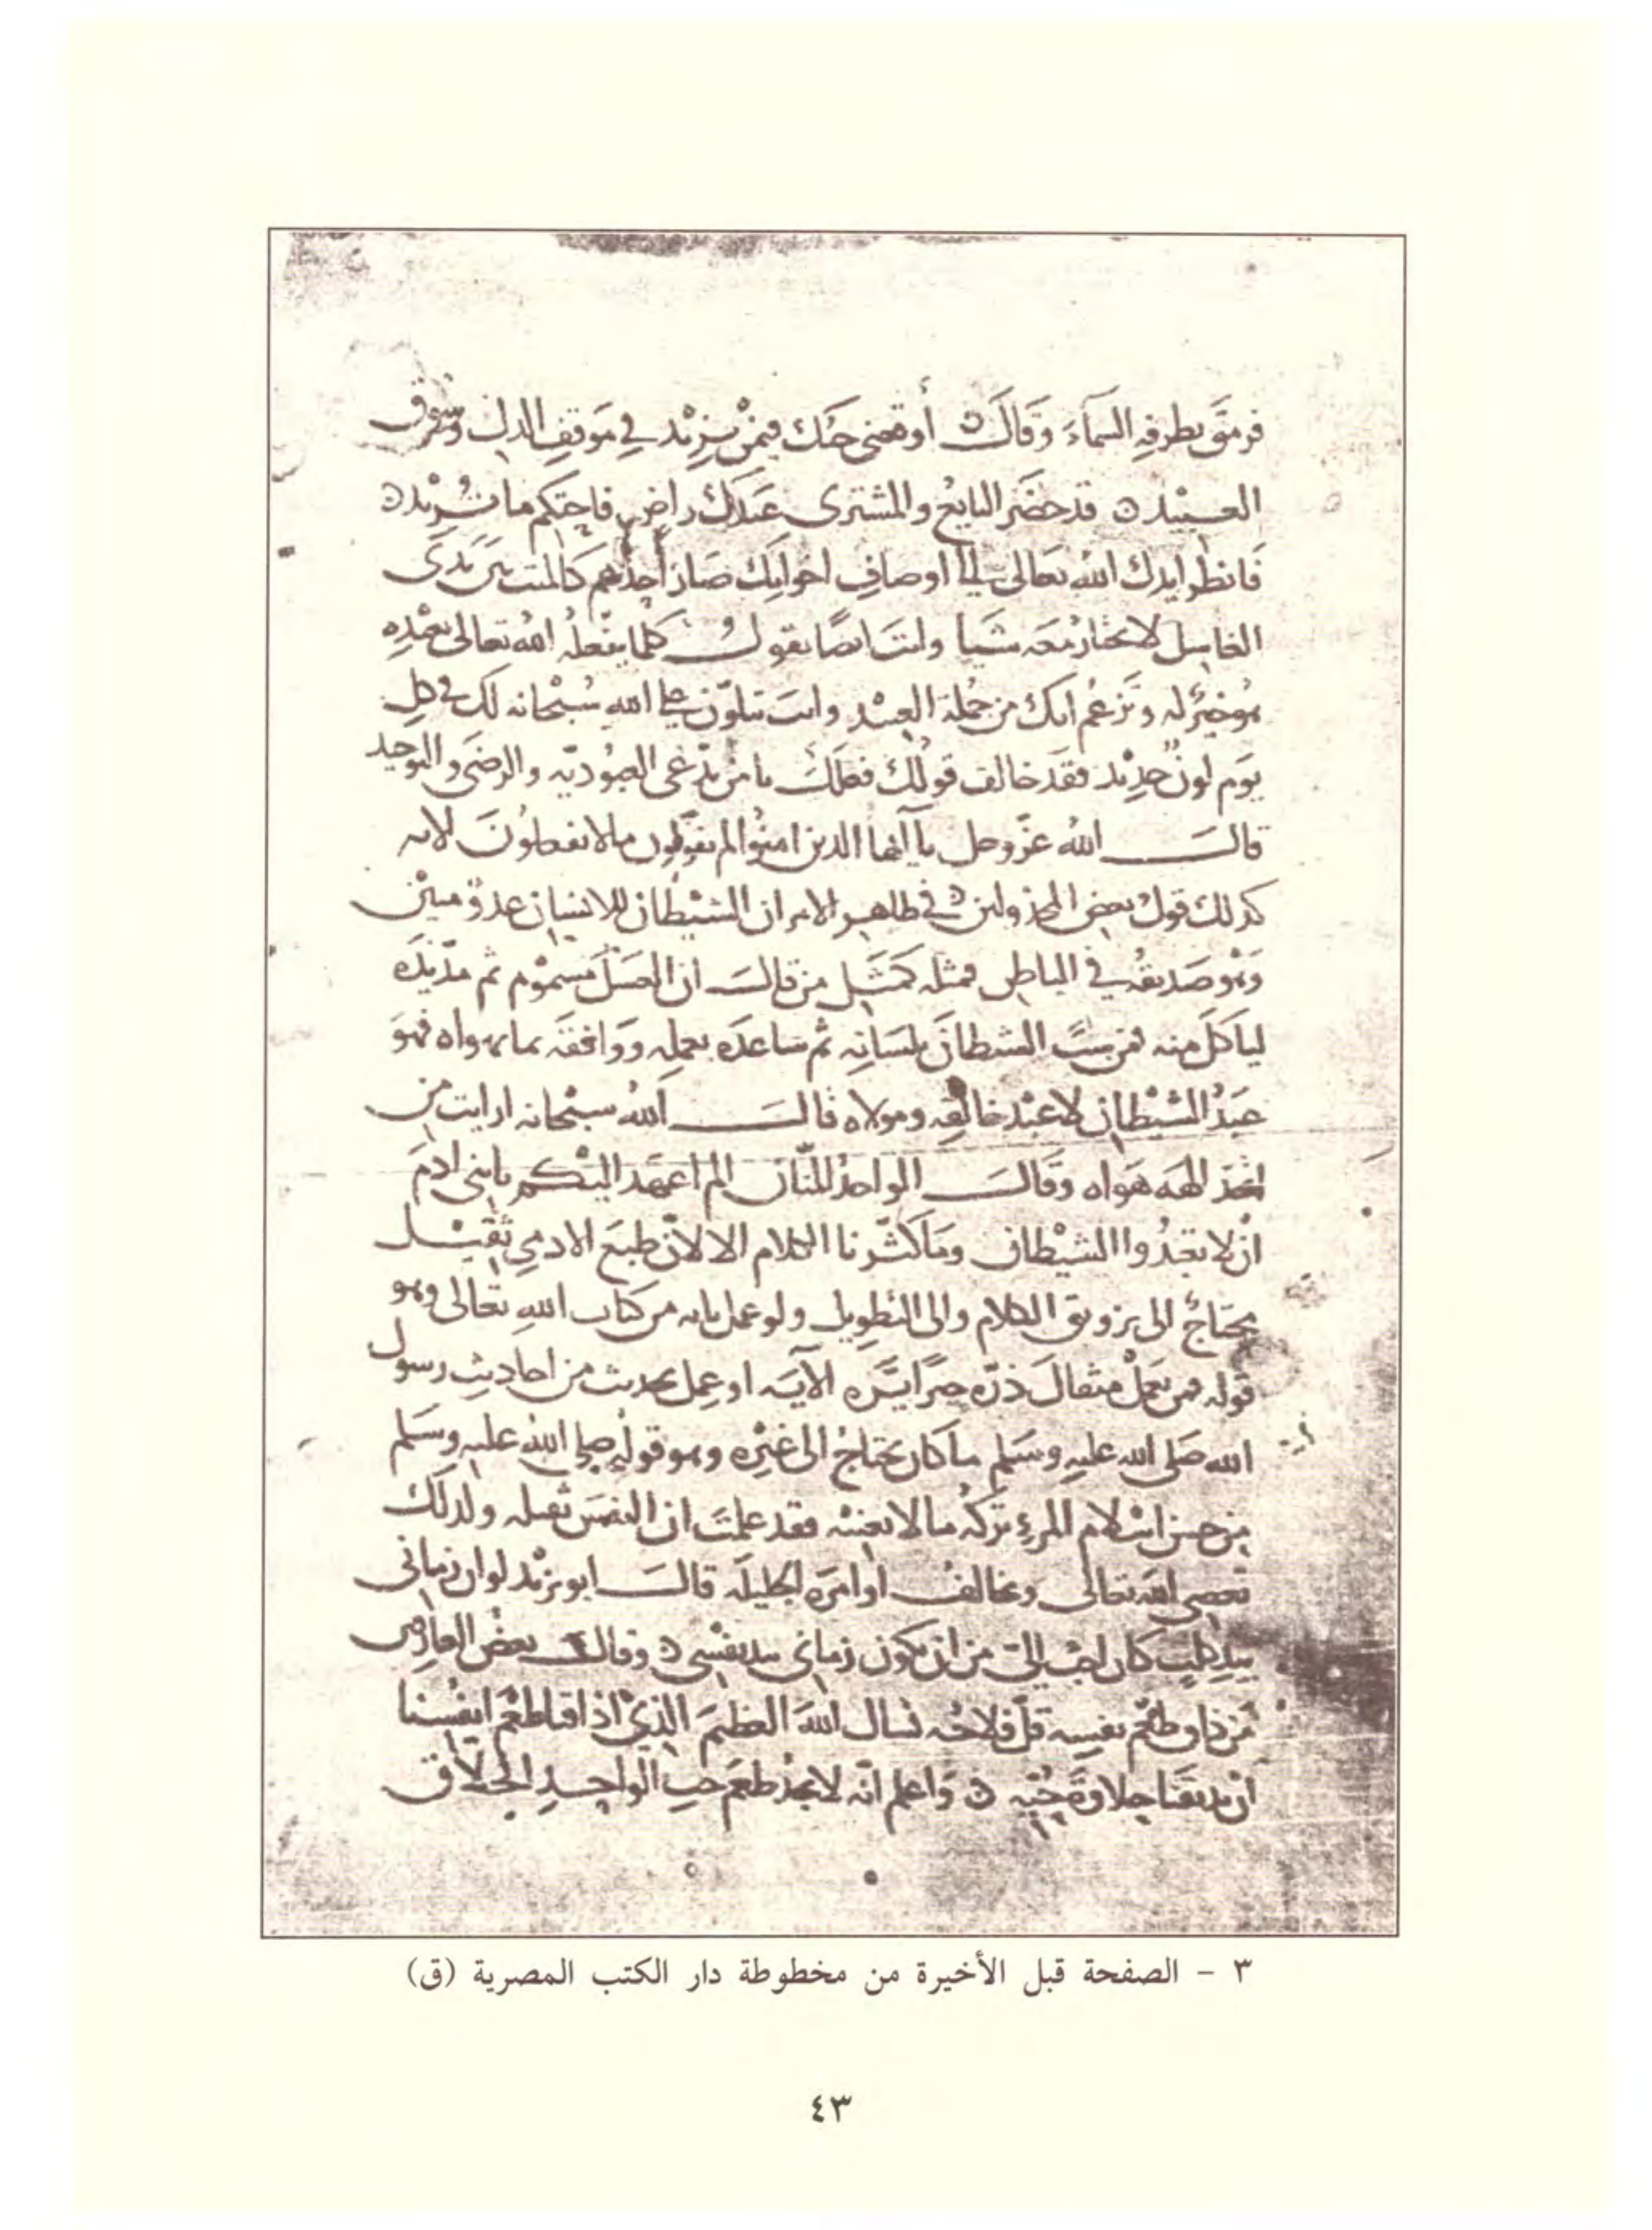 فرمق بطرفه السماء وقال أوقفني حبك فيمن يزيد في موقف الذل وسوق
العبيد قد حضر البايع والمشترى عبدك راض فاحتكم ما تريد
فانظر ايدك الله تعالى الى اوصاف اخوانك صار احدهم كالميت بين يدى
الغاسل لا يختار معه شيا وانت ايضا تقول كلما يفعله الله تعالى بعبده
هو خير له وتزعم انك من جملة العبيد وانت تتلون على الله سبحانه لك في كل
يوم لون جديد فقد خالف قولك فعلك يا من يدعى العبودية والرضى والتوحيد
قال الله عز وجل يا أيها الذين امنوا لم تقولون ما لا تفعلون لانه
كذلك قول بعض المخذولين في ظاهر الامر ان الشيطان للانسان عدو مبين
وهو صديقه في الباطن فمثله كمثل من قال ان العسل مسموم ثم مد يده
لياكل منه فمن سب الشيطان بلسانه ثم ساعده بعمله ووافقه بما يهواه فهو
عبد الشيطان لا عبد خالقه ومولاه قال الله سبحانه ارايت من
اتخذ الهه هواه وقال الواحد المنان الم اعهد اليكم يا بنى ادم
ان لا تعبدوا الشيطان وما كثرنا الكلام الا لان طبع الادمي ثقيل
يحتاج الى تزويق الكلام والى التطويل ولو عمل باية من كتاب الله تعالى وهو
قوله فمن يعمل مثقال ذرة خيرا يره الآية او عمل بحديث من احاديث رسول
الله صلى الله عليه وسلم ما كان يحتاج الى غيره وهو قوله صلى الله عليه وسلم
من حسن اسلام المرء تركه ما لا يعنيه فقد علمت ان النفس ثقيله ولذلك
تعصى الله تعالى وتخالف اوامره الجليلة قال ابو يزيد لو ان زمانى
بيد كلب كان احب الي من ان يكون زمانى بيد نفسى وقال بعض العارفين
من ذاق طعم نفسه قل فلاحه نسال الله العظيم الذي اذاقنا طعم انفسنا
ان يذيقنا حلاوة حبه واعلم انه لا يجد طعم حب الواحد الخلاق
٣ - الصفحة قبل الأخيرة من مخطوطة دار الكتب المصرية (ق)
٤٣